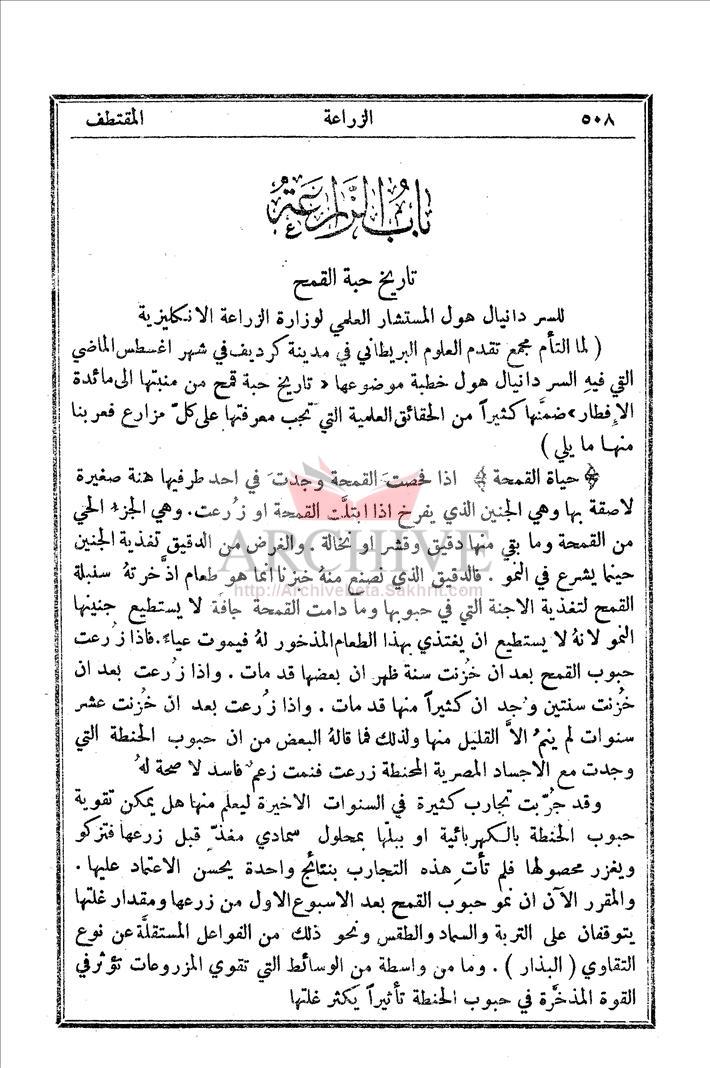 ٥٠٨ الزراعة المقتطف
باب الزراعة
تاريخ حبة القمح
للسر دانيال هول المستشار العلمي لوزارة الزراعة الانكليزية
( لما التأم مجمع تقدم العلوم البريطاني في مدينة كرديف في شهر اغسطس الماضي
التي فيهِ السر دانيال هول خطبة موضوعها « تاريخ حبة قمح من منبتها الى مائدة
الإفطار» ضمَّنها كثيراً من الحقائق العلمية التي تجب معرفتها على كلّ مزارع فعربنا
منها ما يلي )
﴿ حياة القمحة ﴾ اذا فحصتَ القمحة وجدتَ في احد طرفيها هنة صغيرة
لاصقة بها وهي الجنين الذي يفرخ اذا ابتلَّت القمحة او زُرعت. وهي الجزء الحي
من القمحة وما بقي منها دقيق وقشر او نخالة . والغرض من الدقيق تغذية الجنين
حينما يشرع في النمو . فالدقيق الذي نصنع منهُ خبزنا انما هو طعام ادَّخرتهُ سنبلة
القمح لتغذية الاجنة التي في حبوبها وما دامت القمحة جافَّة لا يستطيع جنينها
النمو لانهُ لا يستطيع ان يغتذي بهذا الطعام المذخور لهُ فيموت عياءً. فاذا زُرعت
حبوب القمح بعد ان خُزنت سنة ظهر ان بعضها قد مات . واذا زُرعت بعد ان
خُزنت سنتين وُجد ان كثيراً منها قد مات . واذا زُرعت بعد ان خُزنت عشر
سنوات لم ينمُ الاَّ القليل منها ولذلك فما قالهُ البعض من ان حبوب الحنطة التي
وجدت مع الاجساد المصرية المحنطة زرعت فنمت زعمٌ فاسد لا صحة لهُ
وقد جُرّبت تجارب كثيرة في السنوات الاخيرة ليعلم منها هل يمكن تقوية
حبوب الحنطة بالكهربائية او ببلّها بمحلول سمادي مغذّ قبل زرعها فتزكو
ويغزر محصولها فلم تأتِ هذه التجارب بنتائج واحدة يحسن الاعتماد عليها .
والمقرر الآن ان نمو حبوب القمح بعد الاسبوع الاول من زرعها ومقدار غلتها
يتوقفان على التربة والسماد والطقس ونحو ذلك من الفواعل المستقلَّة عن نوع
التقاوي ( البذار ) . وما من واسطة من الوسائط التي تقوي المزروعات تؤثر في
القوة المذخَّرة في حبوب الحنطة تأثيراً يكثر غلتها
ARCHIVE
http://Archivebeta.Sakhrit.com